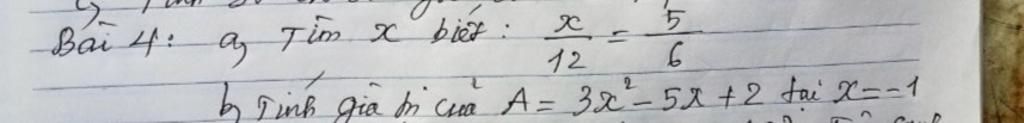 Bài 4: a, Tìm x biết: x/12 = 5/6
b, Tính giá trị của A = 3x² - 5x + 2 tại x = -1